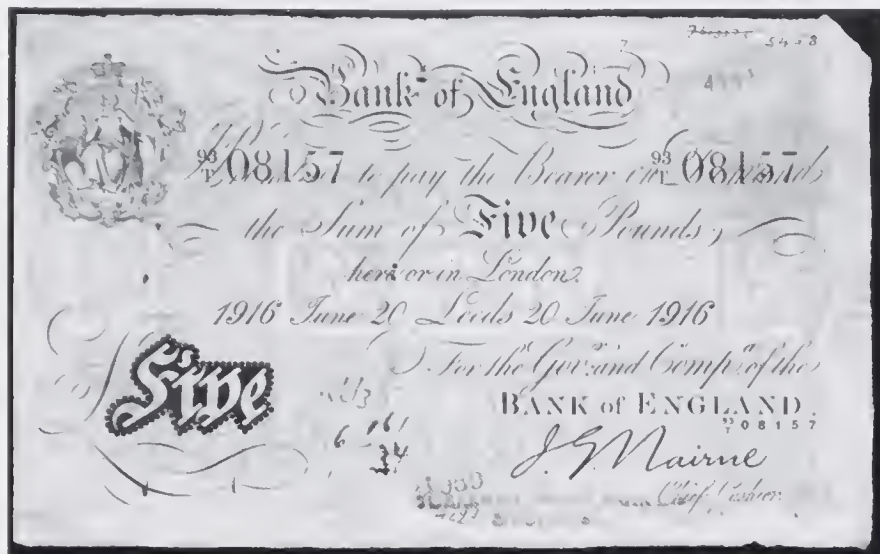 5458
Bank of England
93/T 08157 to pay the Bearer on Demand 93/T 08157
the Sum of Five Pounds,
here or in London.
1916 June 20 Leeds 20 June 1916
For the Govr. and Compa. of the
Five
BANK of ENGLAND.
93/T 08157
J. G. Nairne
Chief Cashier.